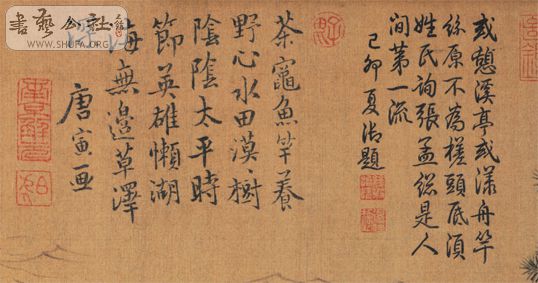 或憩溪亭或漾舟竿
絲原不為槎頭底須
姓氏詢張孟總是人
間第一流
己卯夏御題
茶竈魚竿養
野心水田漠〻樹
陰陰太平時
節英雄懶湖
海無邊草澤
深
唐寅畫
書藝公社
www.SHUFA.ORG